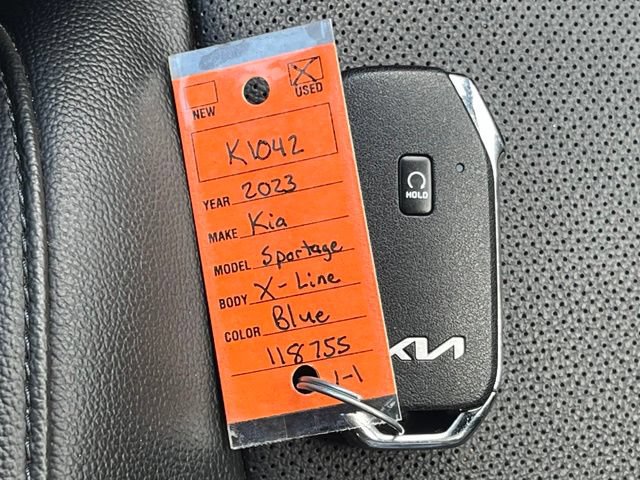 NEW USED
K1042
YEAR 2023
MAKE Kia
MODEL Sportage
BODY X-Line
COLOR Blue
118755
1-1
HOLD
KIA